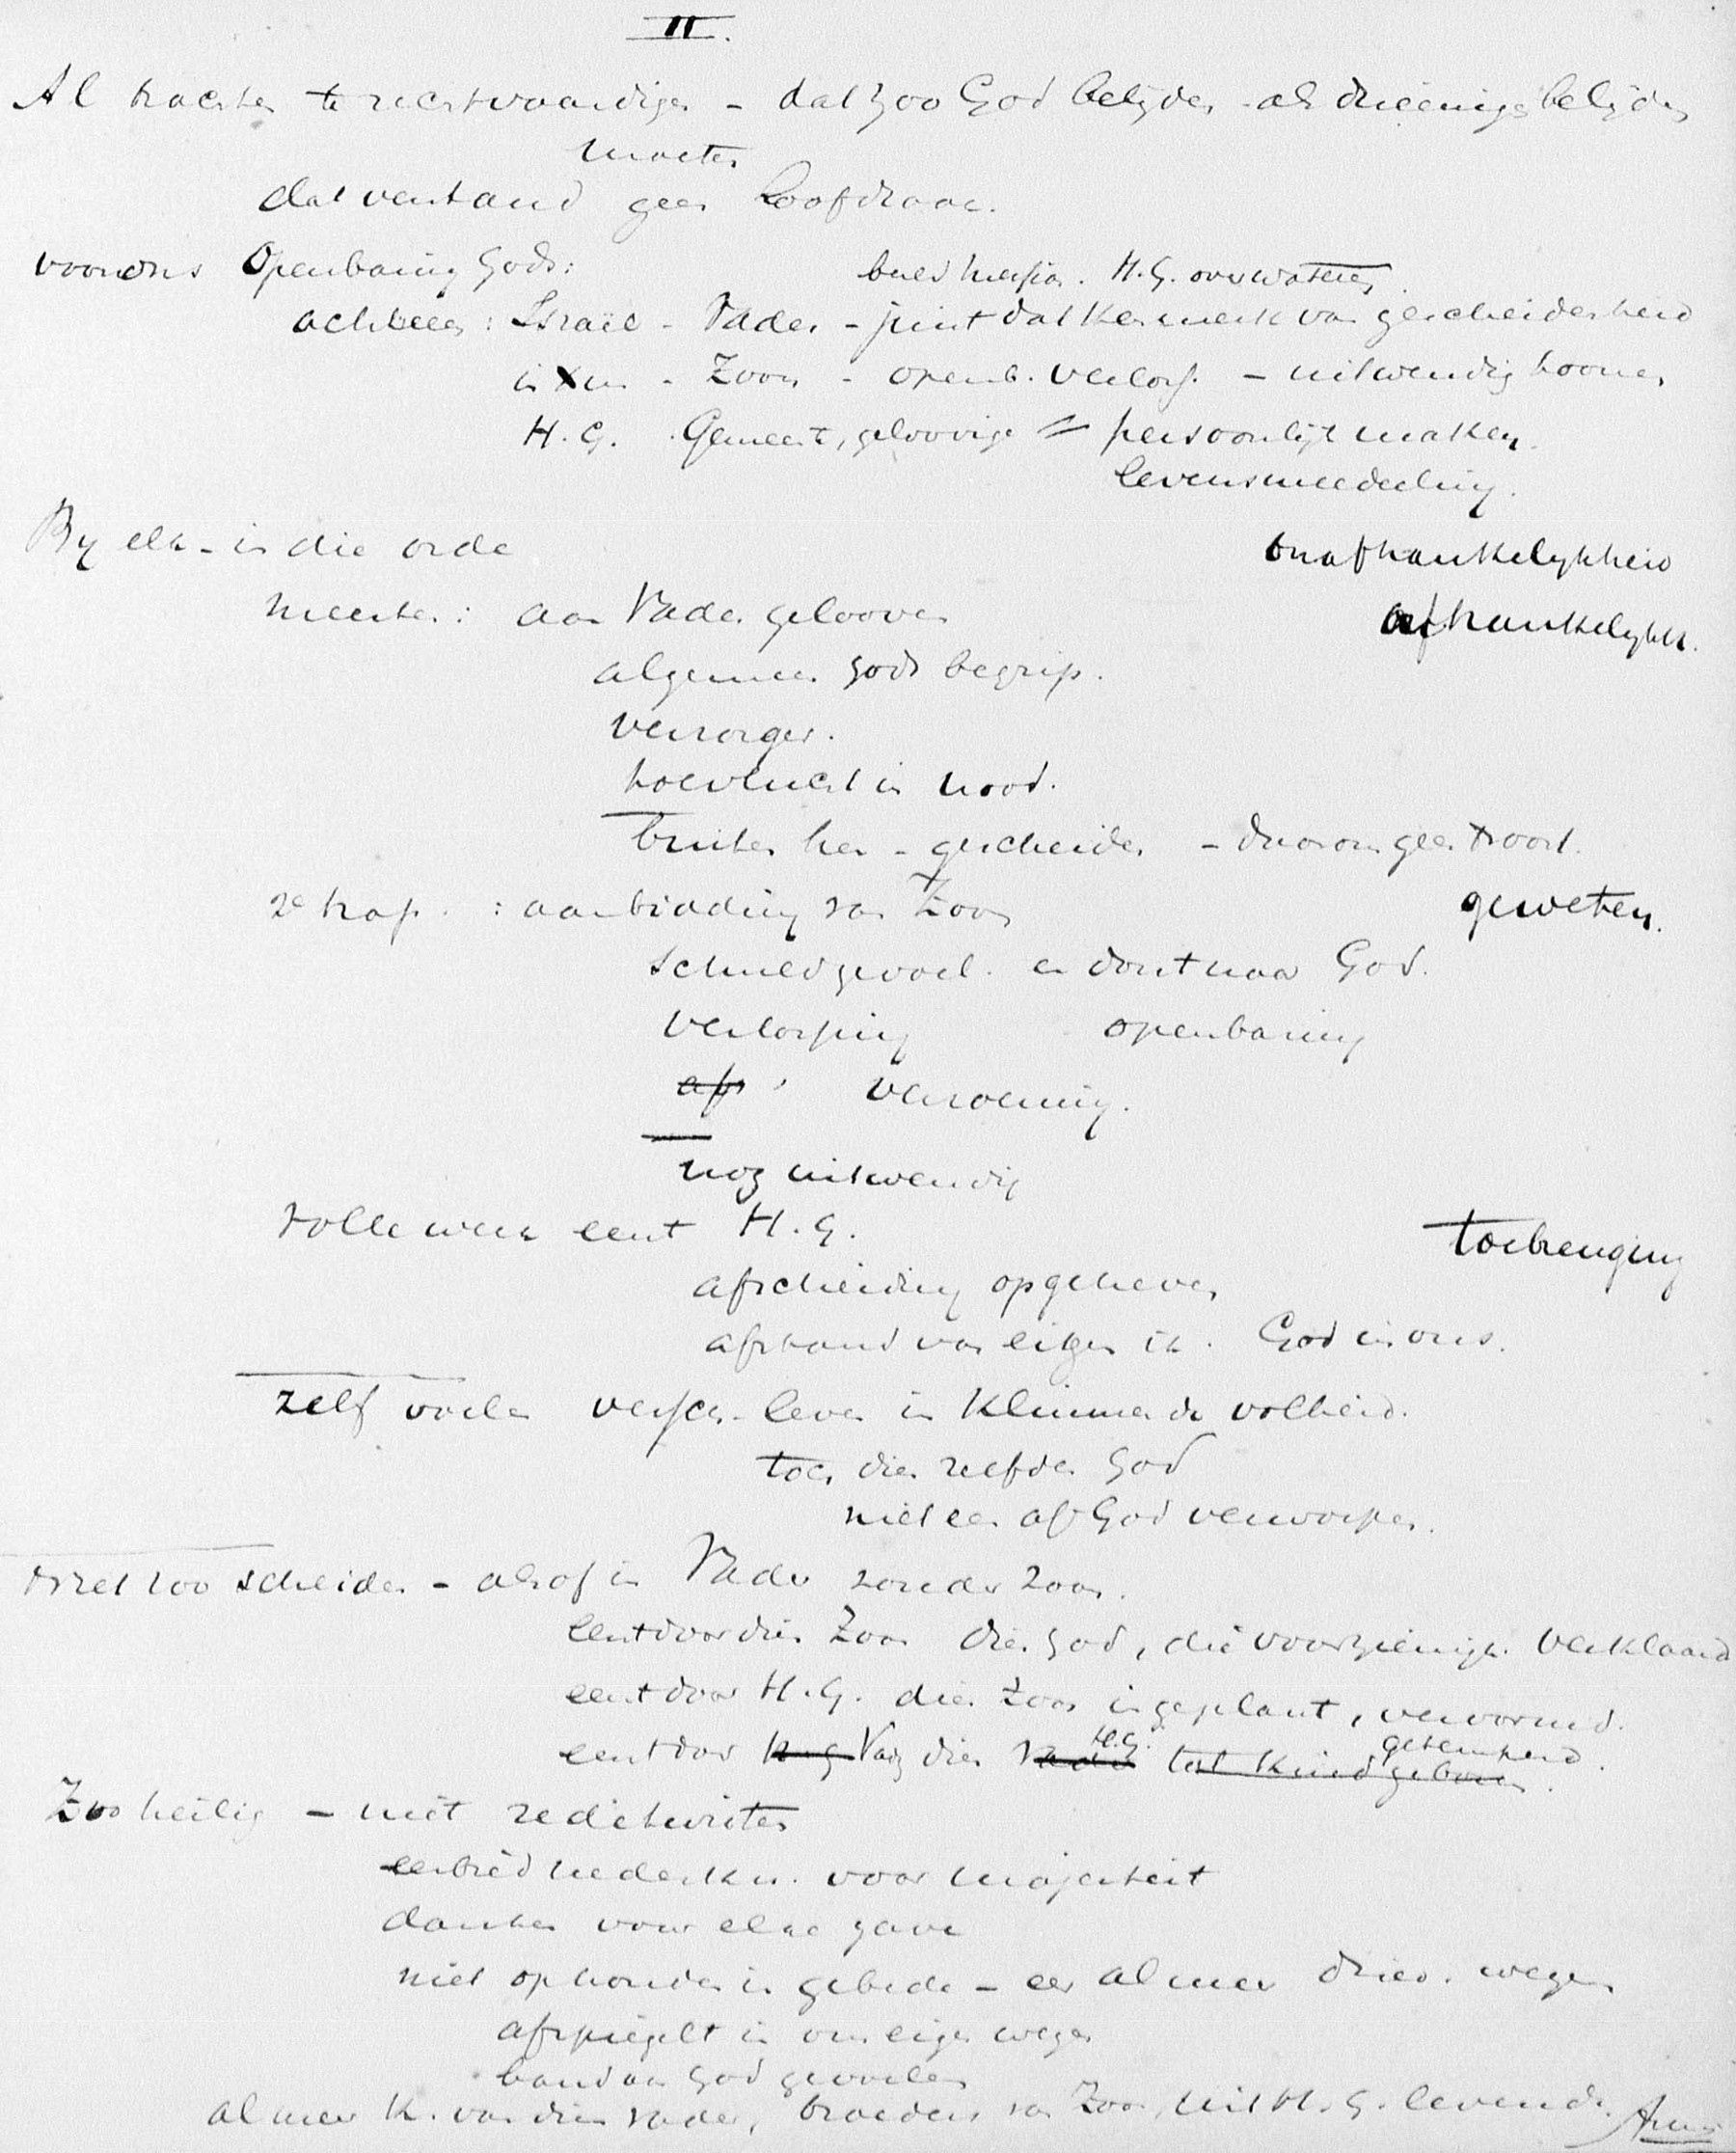 II.
Al trachten te rechtvaardigen - dat zoo God belijden - als drieenige belijden
moeten
dat verstand geen hoofdzaak.
voor ons Openbaring Gods:
H.G. over wateren.
achtereen: Israël - Vader - juist dat kenmerk van gescheidenheid
in X - Zoon - openb. verloss. - uitwendig
H.G. Gemeente, geloovige = persoonlijk maken.
levensmeedeeling.
By elk - in die orde
onafhankelykheid
meesten: aan Vader gelooven
afhankelykh.
algemeen Gods begrip.
Verzorger.
toevlucht in nood.
buiten hen - gescheiden - daarom geen troost.
2e trap. : aanbidding van Zoon
geweten.
schuldgevoel. en dorst naar God.
verlossing openbaring
verzoening.
nog uitwendig
volle werk eerst H.G.
toebrenging
afscheiding opgeheven
afstand van eigen ik. God in ons.
zelf voelen leven in klimmende volheid.
toen dien zelfden God
niet een afGod verworpen.
Niet zoo scheiden - alsof in Vader zonder Zoon.
eerst door dien Zoon dien God, die voorzienigh. verklaard
eerst door H.G. dien Zoon ingeplant, vervormd.
eerst door Vad dien H.G.
Zoo heilig - niet redetwisten
eerbied nederkn. voor majesteit
danken voor elke gave
niet ophouden in gebede - eer al meer drieë. wegen
afspiegelt in ons eigen wegen
band aan God gevoelen
al meer K. van dien Vader, broeders van Zoon, uit H.G. levende. Amen